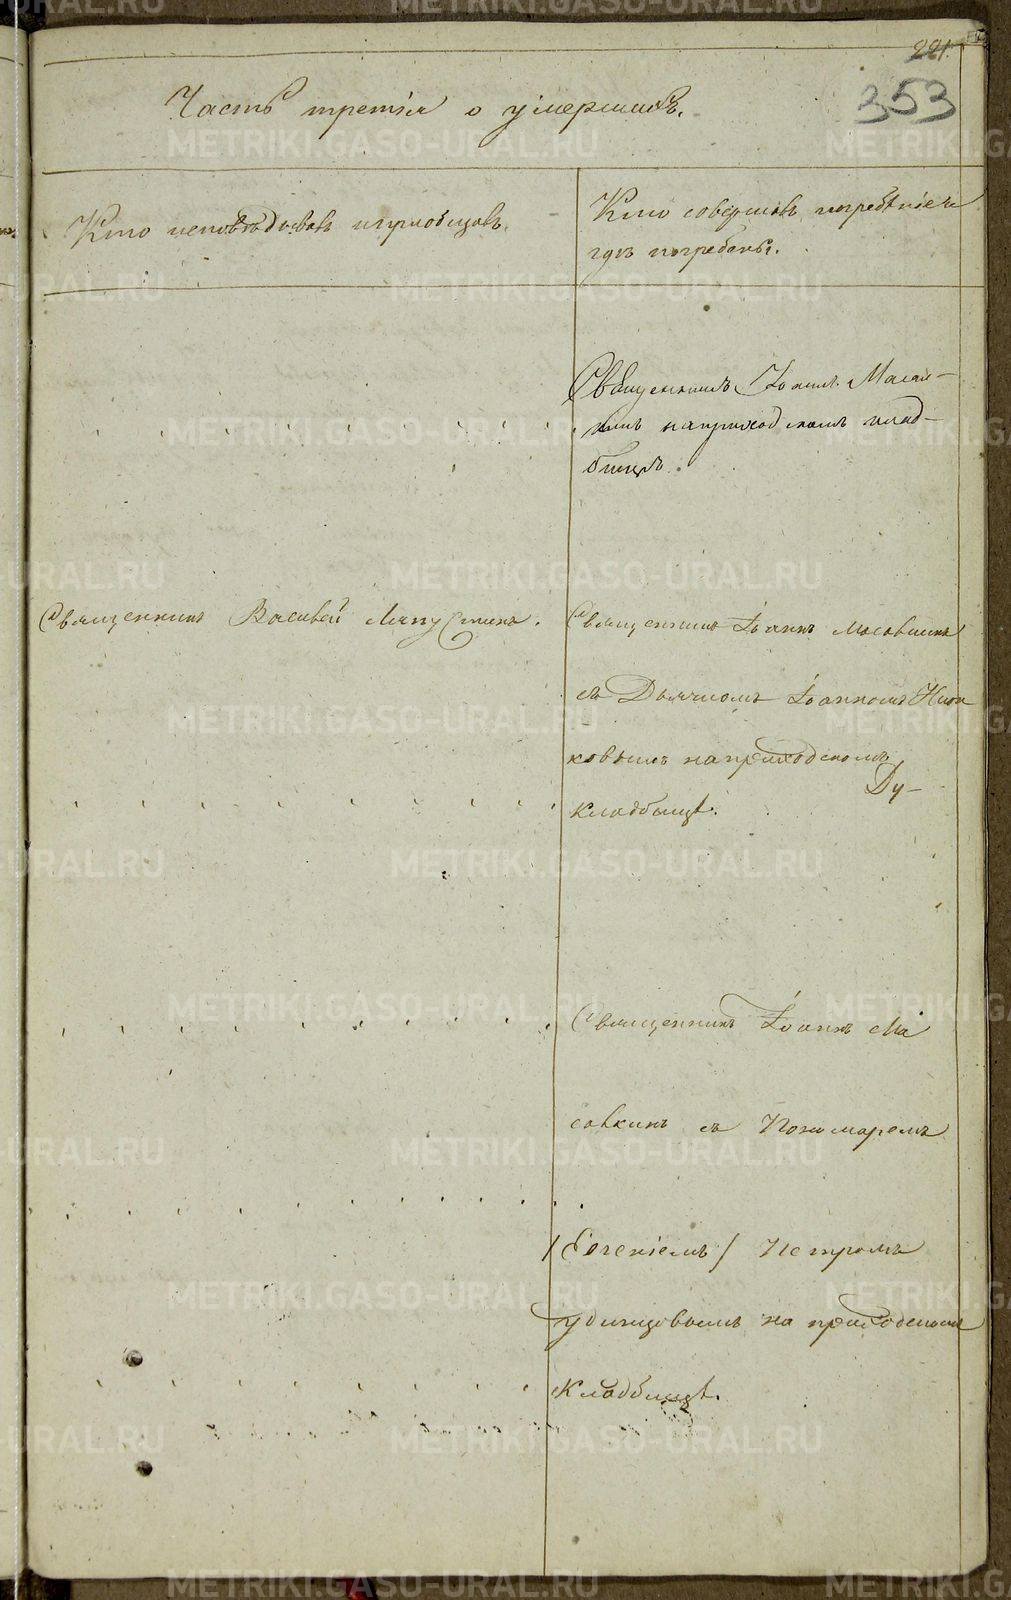 221
353
Часть третія о умершихъ.
Кто исповѣдывалъ и пріобщалъ.
Кто совершалъ погребеніе и
гдѣ погребены.
Священникъ Іоаннъ Масал-
кинъ на приходскомъ клад-
бищѣ.
Священникъ Василій Ляпустинъ.
Священникъ Іоаннъ Масовкинъ
съ Дьячкомъ Іоанномъ
ковымъ на приходскомъ
Ду-
кладбищѣ.
Священникъ Іоаннъ Ма
совкинъ съ Пономаремъ
Петромъ
Удинцовымъ на приходскомъ
Кладбищѣ.
METRIKI.GASO-URAL.RU